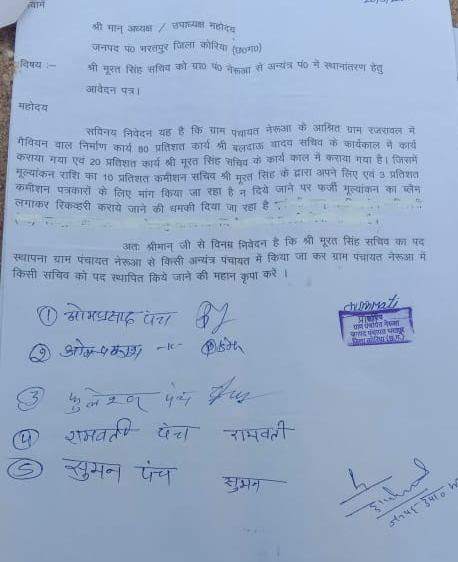 श्री मान् अध्यक्ष / उपाध्यक्ष महोदय
जनपद पं० भरतपुर जिला कोरिया (छ०ग०)
विषय :– श्री मूरत सिंह सचिव को ग्रा० पं० नेरूआ से अन्यंत्र पं० में स्थानांतरण हेतु
आवेदन पत्र।
महोदय
सविनय निवेदन यह है कि ग्राम पंचायत नेरूआ के आश्रित ग्राम रजरावल में
गैवियन वाल निर्माण कार्य 80 प्रतिशत कार्य श्री बलदाऊ यादव सचिव के कार्यकाल में कार्य
कराया गया एवं 20 प्रतिशत कार्य श्री मूरत सिंह सचिव के कार्य काल में कराया गया है। जिसमें
मूल्यांकन राशि का 10 प्रतिशत कमीशन सचिव श्री मूरत सिंह के द्वारा अपने लिए एवं 3 प्रतिशत
कमीशन पत्रकारों के लिए मांग किया जा रहा है न दिये जाने पर फर्जी मूल्यांकन का ब्लैम
लगाकर रिकव्हरी कराये जाने की धमकी दिया जा रहा है
अतः श्रीमान् जी से विनम्र निवेदन है कि श्री मूरत सिंह सचिव का पद
स्थापना ग्राम पंचायत नेरूआ से किसी अन्यंत्र पंचायत में किया जा कर ग्राम पंचायत नेरूआ में
किसी सचिव को पद स्थापित किये जाने की महान कृपा करें ।
① ओमप्रसाद पंच
② ओमप्रकाश -"-
③ फुलेश्वर पंच
④ रामवती पंच रामवती
⑤ सुमन पंच सुमन
सरपंच
ग्राम पंचायत नेरूआ
जनपद पंचायत भरतपुर
जिला कोरिया (छ.ग.)